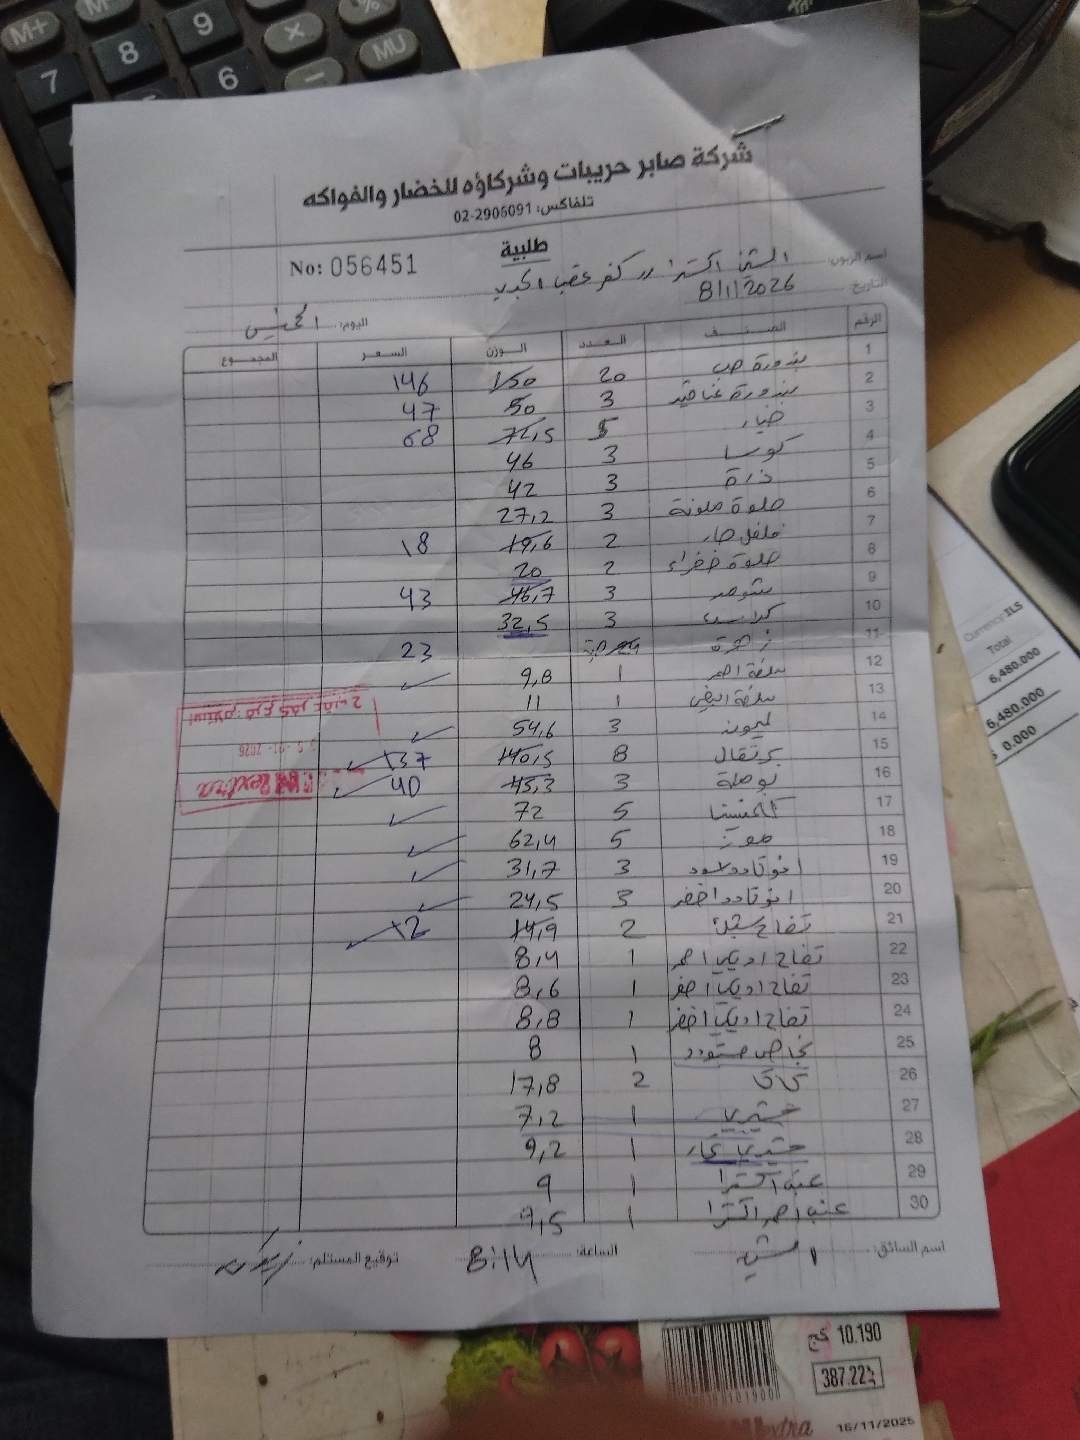 M+
7
8
9
6
×
−
%
MU
شركة صابر حريبات وشركاؤه للخضار والفواكه
تلفاكس: 02-2906091
طلبية
No: 056451
اسم الزبون: الشني اكسترا كفر عقب الجديد
التاريخ: 8/1/2026
اليوم: الخميس
الرقم الصنف العدد الوزن السعر المجموع
1 بندورة حب 20 150 146
2 بندورة عناقيد 3 50 47
3 خيار 5 72,5 68
4 كوسا 3 46
5 ذرة 3 42
6 حلوة ملونة 3 27,2
7 فلفل حار 2 19,6 18
8 حلوة خضراء 2 20
9 3 46,7 43
10 3 32,5
11 زهرة 23
12 ملفوف احمر 1 9,8
13 ملفوف ابيض 1 11
14 ليمون 3 54,6
15 برتقال 8 140,5 137
16 بوملة 3 45,3 40
17 كلمنتينا 5 72
18 موز 5 62,4
19 افوكادو اسود 3 31,7
20 افوكادو اخضر 3 24,5
21 تفاح 2 14,9 12
22 تفاح احمر 1 8,4
23 تفاح اصفر 1 8,6
24 تفاح اخضر 1 8,8
25 نجاص مستورد 1 8
26 كاكا 2 17,8
27 1 7,2
28 1 9,2
29 عنب اكسترا 1 9
30 عنب احمر اكسترا 1 9,5
اسم السائق:
الساعة: 8:14
توقيع المستلم:
استلام فرع كفر عقب 2
extra
Currency ILS
Total
6,480.000
6,480.000
0.000
10.190 كج
387.22
extra
16/11/2025